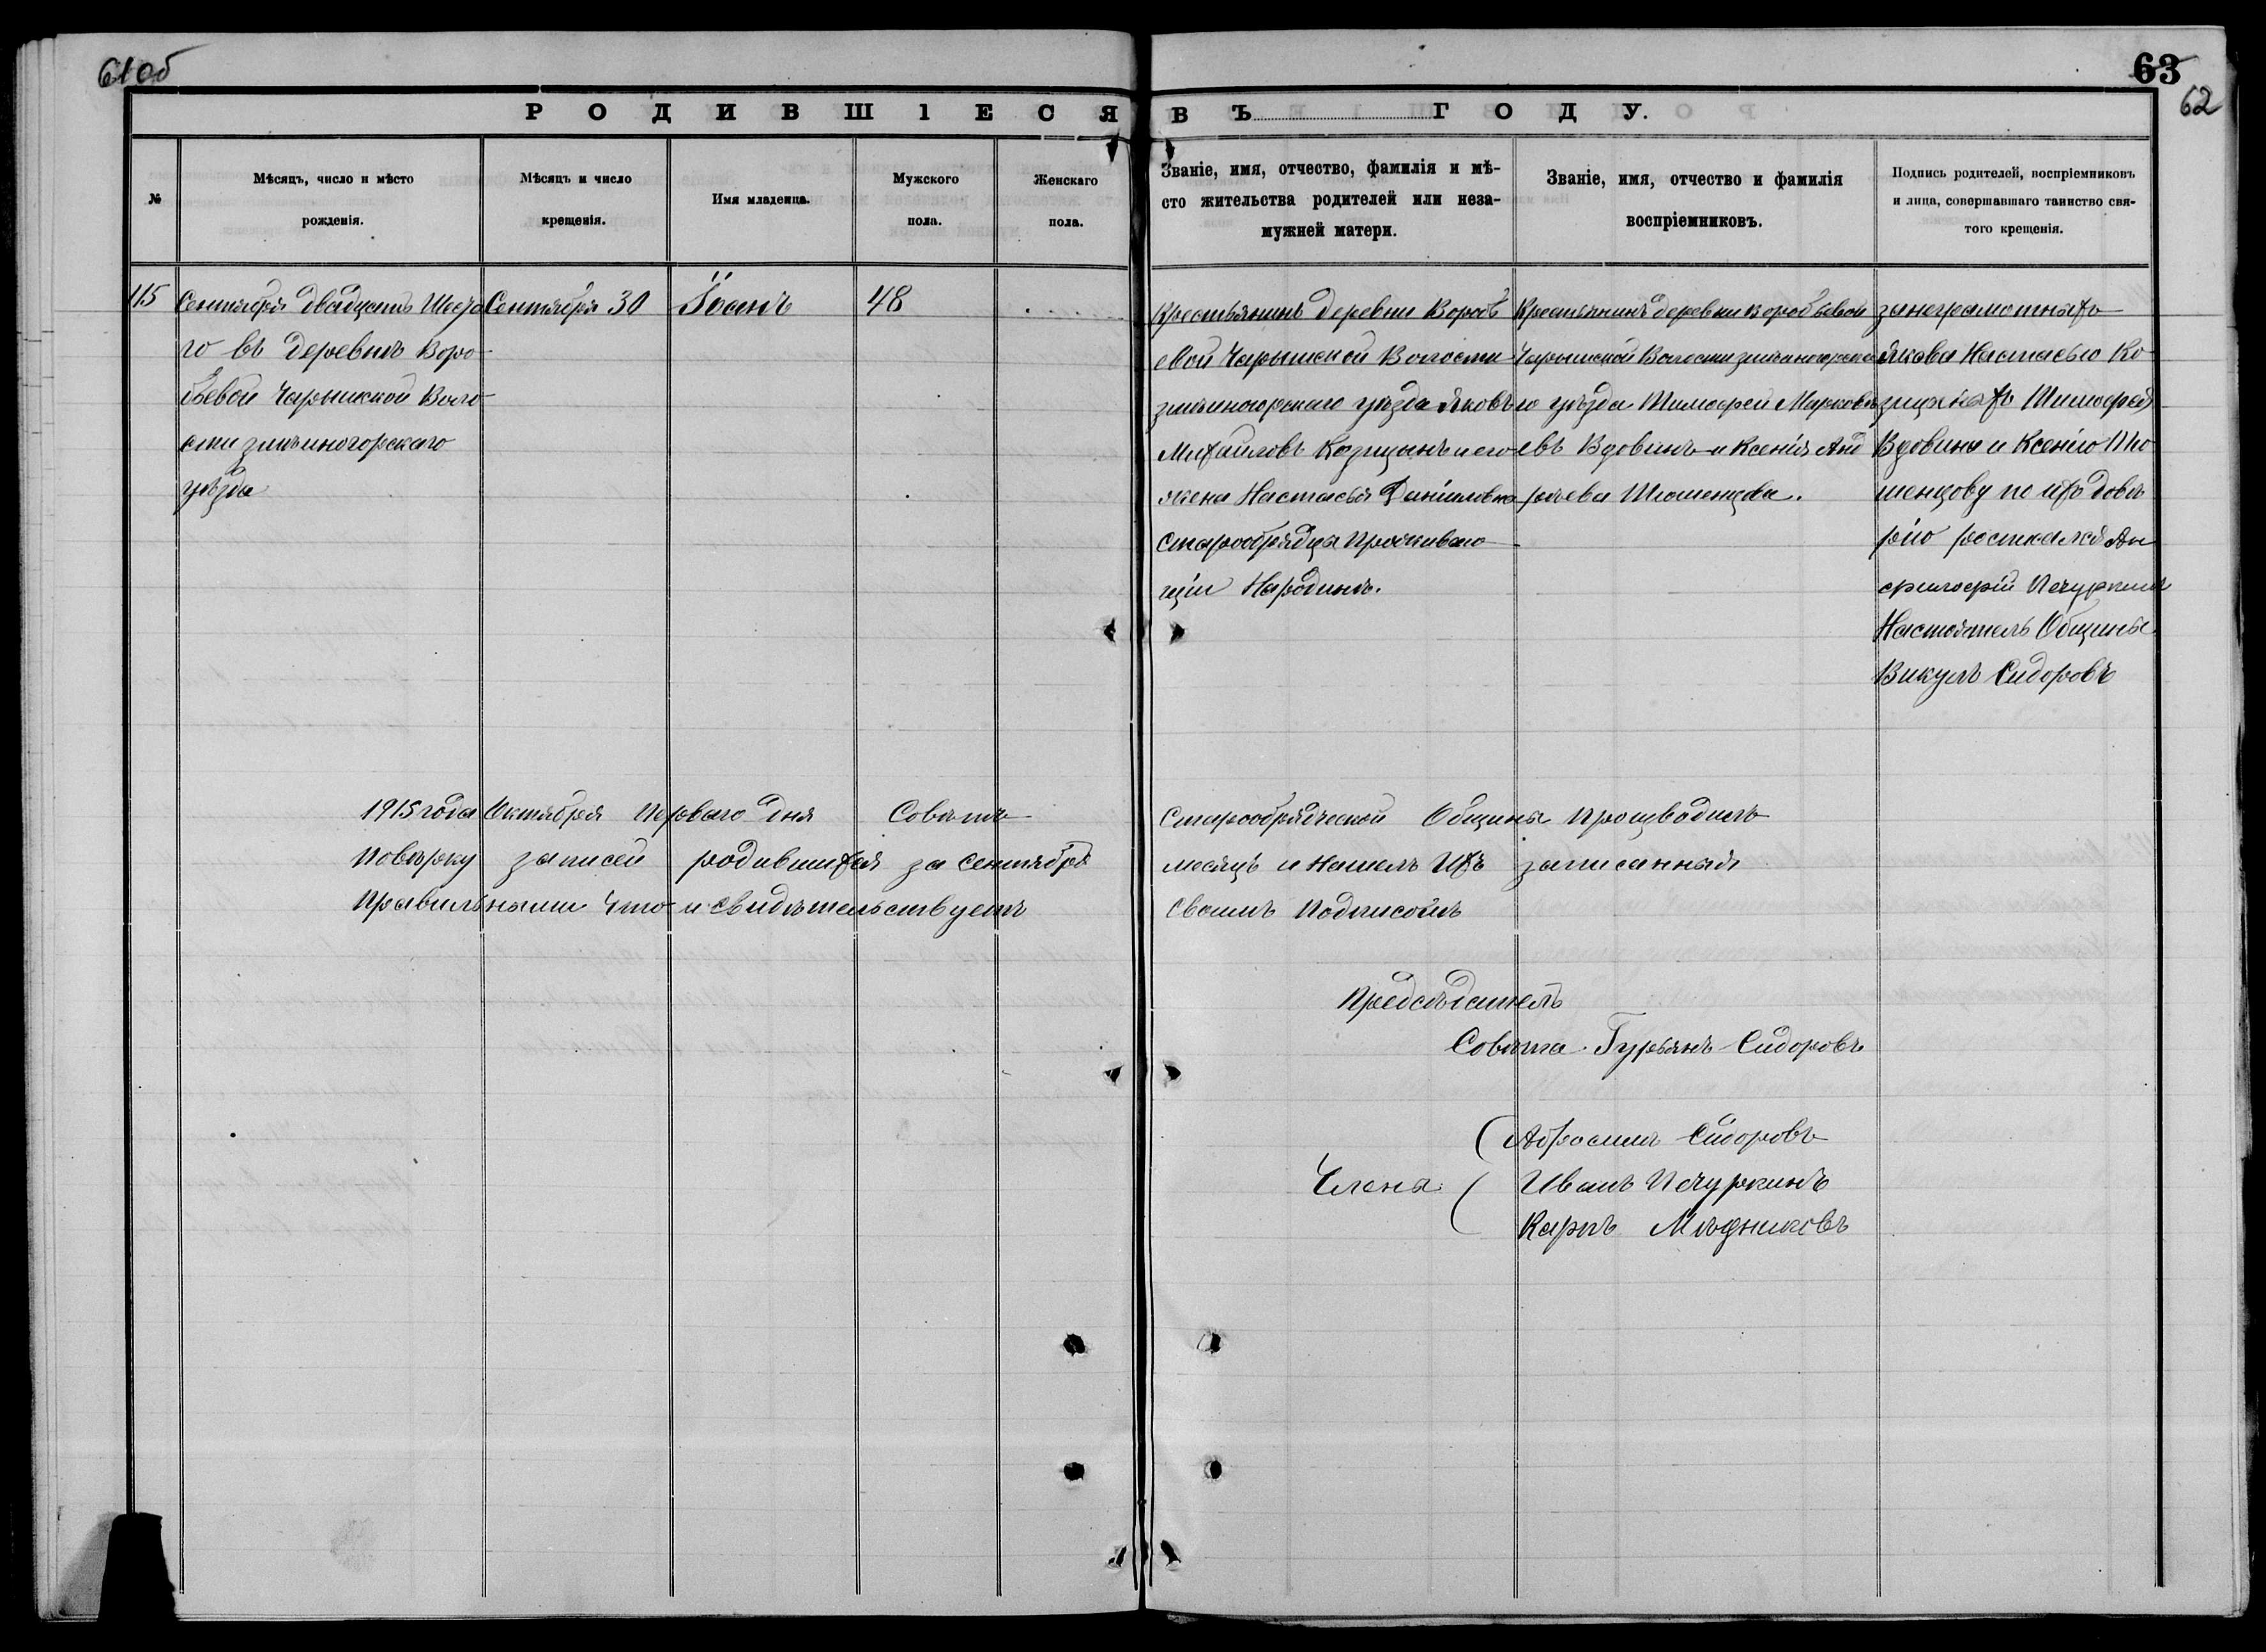 61об
63
62
РОДИВШІЕСЯ ВЪ ГОДУ.
№
Мѣсяцъ, число и мѣсто
рожденія.
Мѣсяцъ и число
крещенія.
Имя младенца.
Мужского
пола.
Женскаго
пола.
Званіе, имя, отчество, фамилія и мѣ-
сто жительства родителей или неза-
мужней матери.
Званіе, имя, отчество и фамилія
воспріемниковъ.
Подпись родителей, воспріемниковъ
и лица, совершавшаго таинство свя-
того крещенія.
115
Сентября двадцать Шеста
го въ деревнѣ Воро-
бьевой Чарышской Воло-
сти змѣиногорскаго
уѣзда
Сентября 30
Іоанъ
48
Крестьянинъ деревни Вороб
евой Чарышской Волости
змѣиногорскаго уѣзда Яковъ
Михаиловъ Казицынъ и его
жена Настасья Даніиловна
Старообрядцы Проживаю-
щіи Народинѣ.
Крестьянинъ деревни воробьевой
Чарышской Волости змѣиногорска
го уѣзда Тимофей Марков
евъ Вдовинъ и Ксенія Анд
рѣева Тюменцева.
занеграмотныхъ
Якова Настасью Ка
зицыныхъ Тимофея
Вдовина и Ксенію Тю
менцову по ихъ довѣ
рію росписался Ан
филофій Печуркинъ
Настоятель Общины
Викулъ Сидоровъ
1915 года Октября Перваго дня Совѣтъ Старообрядческой Общины Производилъ
Повѣрку записей родившихся за Сентябрь месяцъ и Нашелъ Ихъ записанныя
Правильными Что и свидѣтельствуетъ Своимъ Подписомъ
Предсѣдатель
Совѣта Гурьянъ Сидоровъ
Абросимъ Сидоровъ
Члены Иванъ Печуркинъ
Карпъ Мѣдниковъ